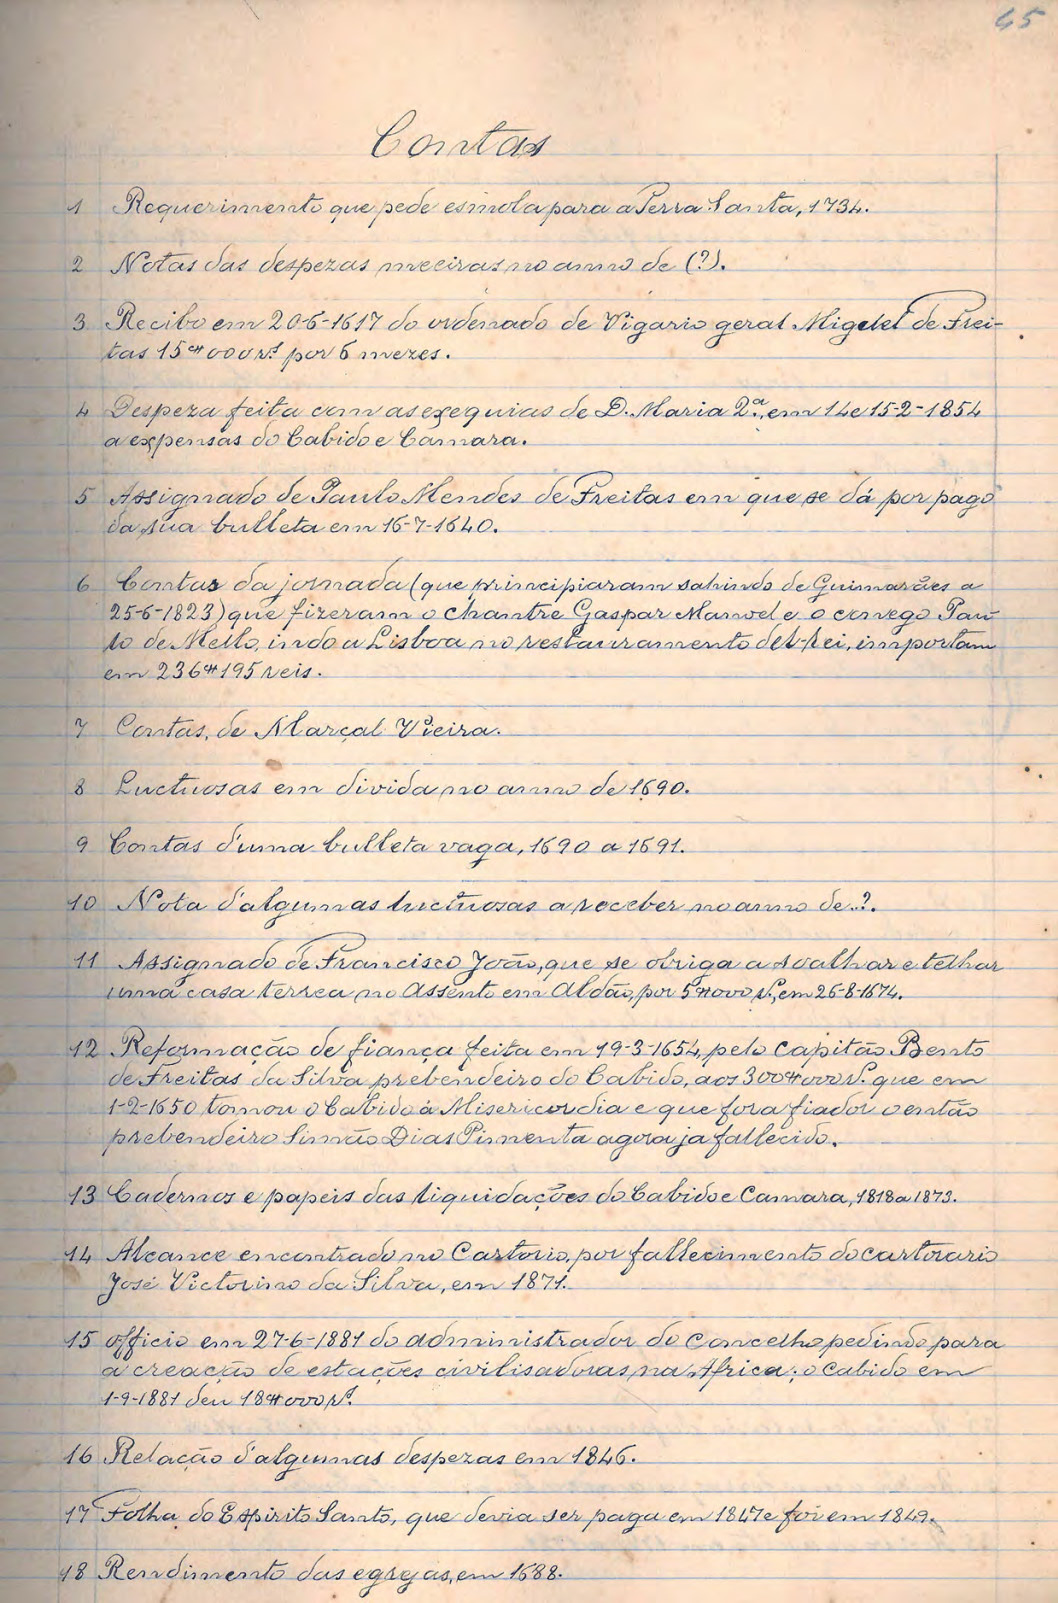 65
Contas
1 Requerimento que pede esmola para a Terra Santa, 1734.
2 Notas das despezas meeiras no anno de (?).
3 Recibo em 20-6-1617 do ordenado de Vigario geral Miguel de Frei-
tas 15#000 rs. por 6 mezes.
4 Despeza feita com as exequias de D. Maria 2.ª, em 14 e 15-2-1854
a expensas do Cabido e Camara.
5 Assignado de Paulo Mendes de Freitas em que se dá por pago
da sua bulleta em 16-7-1640.
6 Contas da jornada (que principiaram sahindo de Guimarães a
25-6-1823) que fizeram o chantre Gaspar Manoel e o conego Pau-
lo de Mello, indo a Lisboa no restauramento del-rei, importam
em 236#195 reis.
7 Contas, de Marçal Vieira.
8 Luctuosas em divida no anno de 1690.
9 Contas d'uma bulleta vaga, 1690 a 1691.
10 Nota d'algumas luctuosas a receber no anno de..?.
11 Assignado de Francisco João, que se obriga a soalhar e telhar
uma casa terrea no Assento em Aldão, por 5#000 rs., em 26-8-1674.
12 Reformação de fiança feita em 19-3-1654, pelo capitão Bento
de Freitas da Silva prebendeiro do Cabido, aos 300#000 rs. que em
1-2-1650 tomou o Cabido á Misericordia e que fora fiador o então
prebendeiro Simão Dias Pimenta agora ja fallecido.
13 Cadernos e papeis das liquidações do Cabido e Camara, 1818 a 1873.
14 Alcance encontrado no Cartorio, por fallecimento do cartorario
José Victorino da Silva, em 1871.
15 Officio em 27-6-1881 do administrador do Concelho pedindo para
a creação de estações civilisadoras na Africa; o Cabido em
1-9-1881 deu 18#000 rs.
16 Relação d'algumas despezas em 1846.
17 Folha do Espirito Santo, que devia ser paga em 1847 e foi em 1849.
18 Rendimento das egrejas, em 1688.